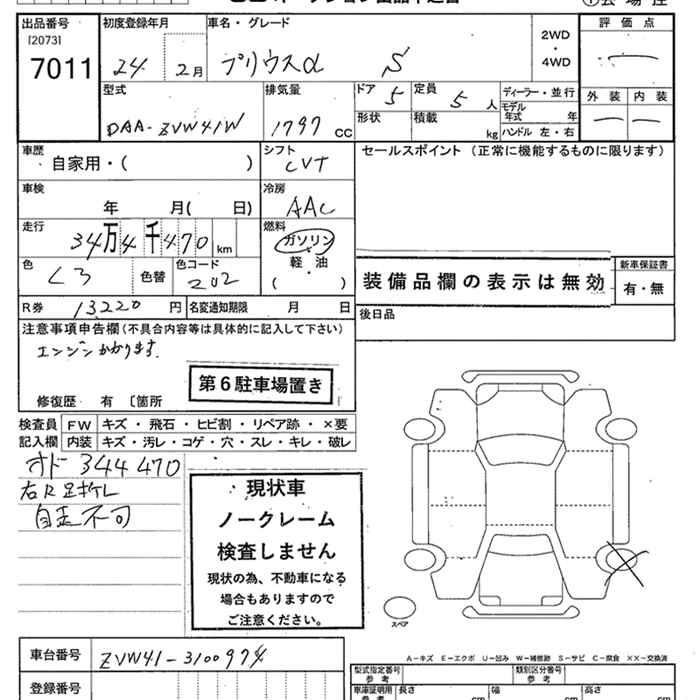 出品番号 初度登録年月 車名・グレード 評価点
[2073]
7011 24 2月 プリウスα S 2WD・4WD
外装 内装
型式 排気量 ドア 定員 ディーラー・並行
DAA-ZVW41W 1797 CC 5 5人 モデル年式 年
形状 積載 kg ハンドル 左・右
車歴 シフト セールスポイント（正常に機能するものに限ります）
自家用・( ) CVT
車検 冷房
年 月( 日) AAC
走行 燃料
34万4千470 km ガソリン
軽・油
( )
色 色替 色コード 装備品欄の表示は無効 新車保証書
クロ 202 有・無
R券 13220円 名変通知期限 月 日 後日品
注意事項申告欄(不具合内容等は具体的に記入して下さい)
エンジンかかります.
第6駐車場置き
修復歴 有 〔箇所
検査員 FW キズ・飛石・ヒビ割・リペア跡・×要
記入欄 内装 キズ・汚レ・コゲ・穴・スレ・キレ・破レ
オド 344470
右R足折レ
自走不可
現状車
ノークレーム
検査しません
現状の為、不動車になる
場合もありますので
ご注意ください。
スペア
車台番号 ZVW41-3100974
A-キズ E-エクボ U-凹み W-補修跡 S-サビ C-腐食 ××-交換済
型式指定番号 参考 類別区分番号 参考
登録番号 車庫証明用 参考 長さ cm 幅 cm 高さ cm